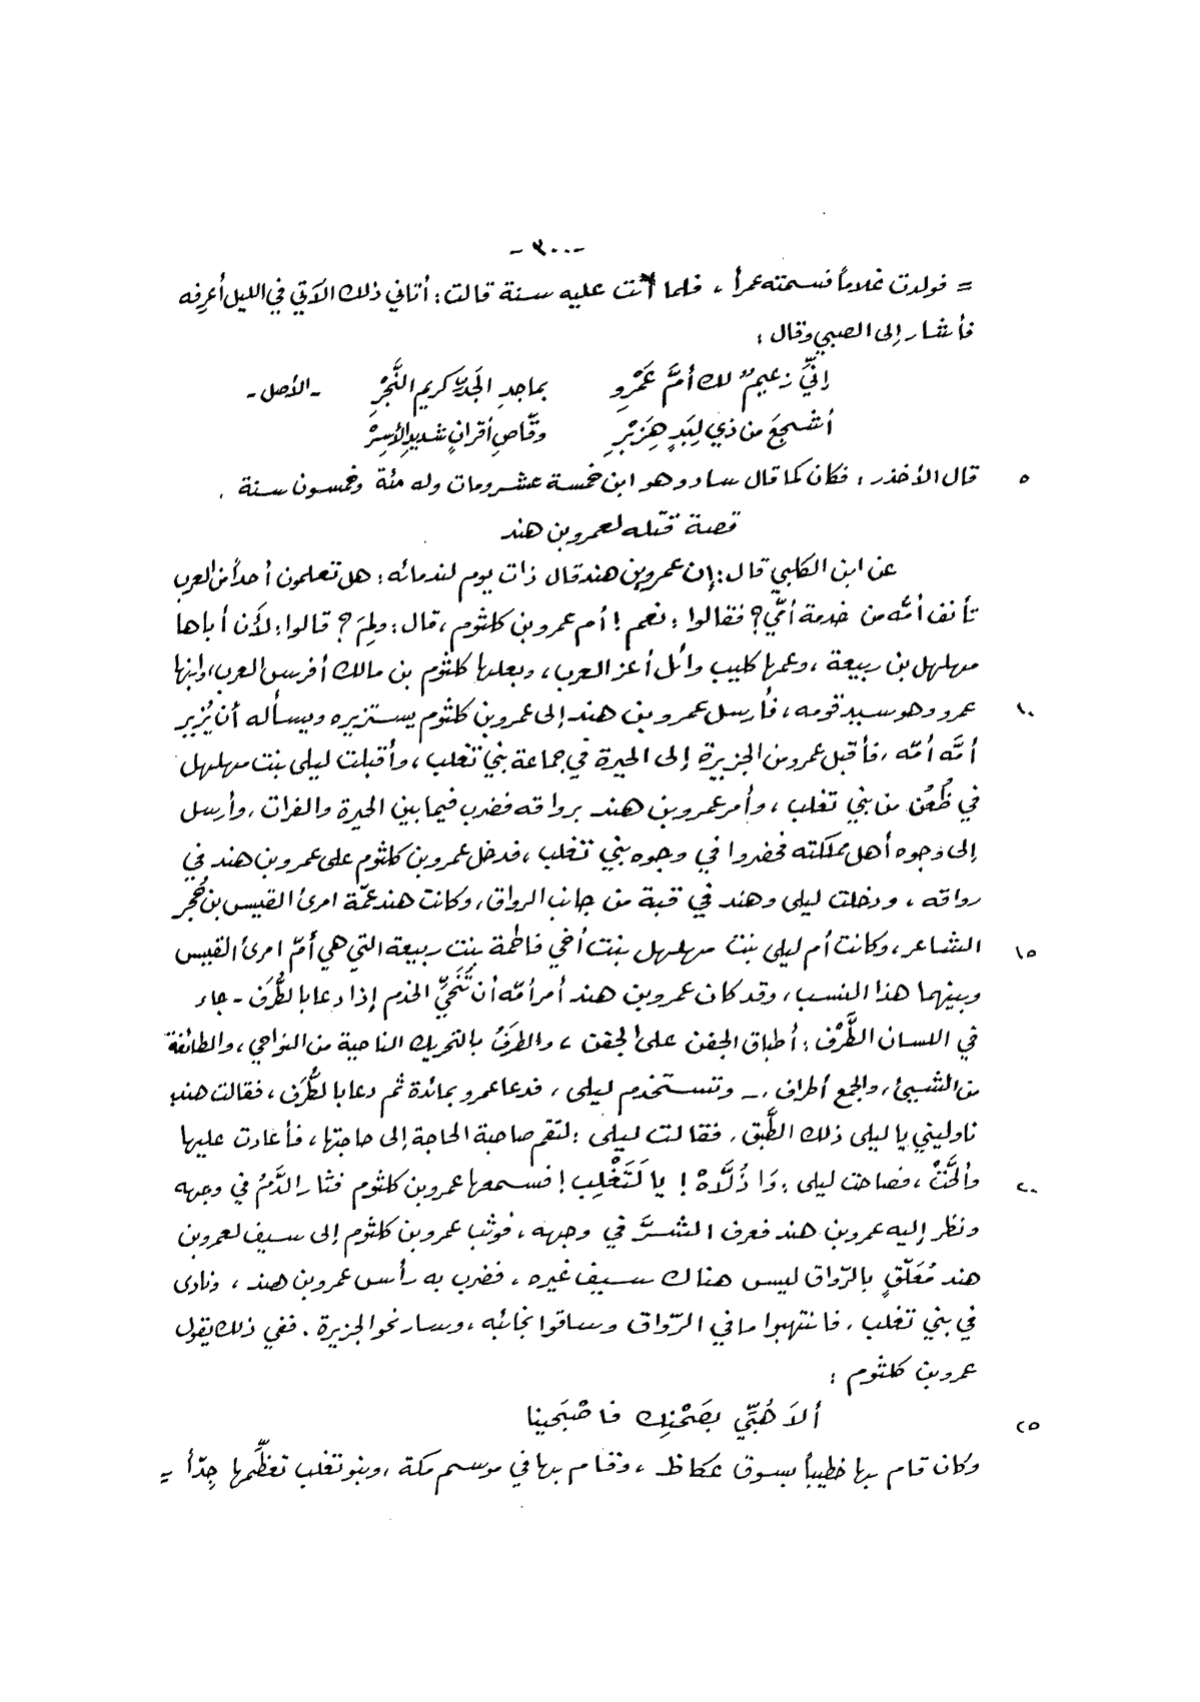 -٣٠٠-
= فولدت غلاماً فسمته عمراً ، فلما أتت عليه سنة قالت : أتاني ذلك الآتي في الليل أعرفه
فأشار إلى الصبي وقال :
إنّي زعيمٌ لك أمَّ عَمْرِو بماجدِ الجَدِّ كريم النَّجْرِ - الأصل -
أشجعَ من ذي لِبَدٍ هِزَبْرِ وقّاصِ أقرانٍ شديدِ الأسِرْ
٥ قال الأخذر : فكان كما قال ساد وهو ابن خمسة عشر ومات وله مئة وخمسون سنة .
قصة قتله لعمرو بن هند
عن ابن الكلبي قال : إن عمرو بن هند قال ذات يوم لندمائه : هل تعلمون أحداً من العرب
تأنف أمّه من خدمة أمّي ؟ فقالوا : نعم ! أم عمرو بن كلثوم ، قال : ولِمَ ؟ قالوا : لأن أباها
مهلهل بن ربيعة ، وعمها كليب وائل أعز العرب ، وبعلها كلثوم بن مالك أفرس العرب ، وابنها
١٠ عمرو وهو سيد قومه ، فأرسل عمرو بن هند إلى عمرو بن كلثوم يستزيره ويسأله أن يُزير
أمَّه أمّه ، فأقبل عمرو من الجزيرة إلى الحيرة في جماعة بني تغلب ، وأقبلت ليلى بنت مهلهل
في ظُعُن من بني تغلب ، وأمر عمرو بن هند برواقه فضرب فيما بين الحيرة والفرات ، وأرسل
إلى وجوه أهل مملكته فحضروا في وجوه بني تغلب ، فدخل عمرو بن كلثوم على عمرو بن هند في
رواقه ، ودخلت ليلى وهند في قبة من جانب الرواق ، وكانت هند عمّة امرئ القيس بن حُجر
١٥ الشاعر ، وكانت أم ليلى بنت مهلهل بنت أخي فاطمة بنت ربيعة التي هي أمّ امرئ القيس
وبينهما هذا النسب ، وقد كان عمرو بن هند أمر أمّه أن تُنَحّيَ الخدم إذا دعا بالطُّرَف - جاء
في اللسان الطَّرْف : أطباق الجفن على الجفن ، والطرَفُ بالتحريك الناحية من النواحي ، والطائفة
من الشيئ ، والجمع أطراف . - وتستخدم ليلى ، فدعا عمرو بمائدة ثم دعا بالطُّرَف ، فقالت هند
ناوليني يا ليلى ذلك الطَّبق ، فقالت ليلى : لتقم صاحبة الحاجة إلى حاجتها ، فأعادت عليها
٢٠ وألحَّتْ ، فصاحت ليلى : وَا ذُلَّاهْ ! يا لَتَغْلِب ! فسمعها عمرو بن كلثوم فثار الدَّمُ في وجهه
ونظر إليه عمرو بن هند فعرف الشرَّ في وجهه ، فوثب عمرو بن كلثوم إلى سيف لعمرو بن
هند مُعَلّقٍ بالرّواق ليس هناك سيف غيره ، فضرب به رأس عمرو بن هند ، ونادى
في بني تغلب ، فانتهبوا ما في الرّواق وساقوا نجائبه ، وسار نحو الجزيرة . ففي ذلك يقول
عمرو بن كلثوم :
٢٥ ألاَ هُبّي بصَحْنِك فاصْبَحينا
وكان قام بها خطيباً بسوق عكاظ ، وقام بها في موسم مكة ، وبنو تغلب تعظّمها جِدّاً =